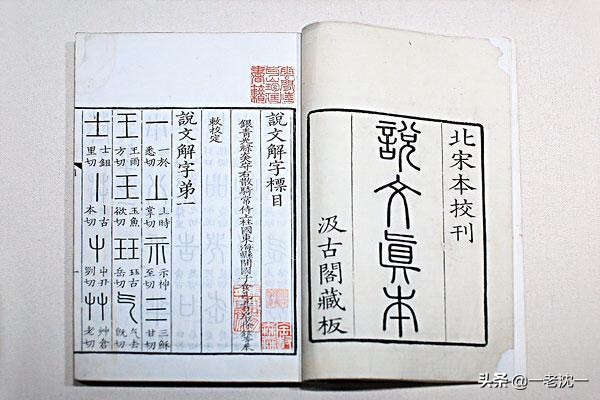 北宋本校刊
說文眞本
汲古閣藏板
說文解字標目
銀青光祿大夫守右散騎常侍上柱國東海縣開國子食邑五百戶臣徐鉉等奉
敕校定
說文解字弟一
一 一於悉切 丄 上時掌切 示 示神至切 三 三穌甘切
王 王雨方切 王 玉魚欲切 玨 珏古岳切 气 气去旣切
士 士鉏里切 丨 丨古本切 屮 屮丑切 艸 艸倉老切
头条 @一老沈一